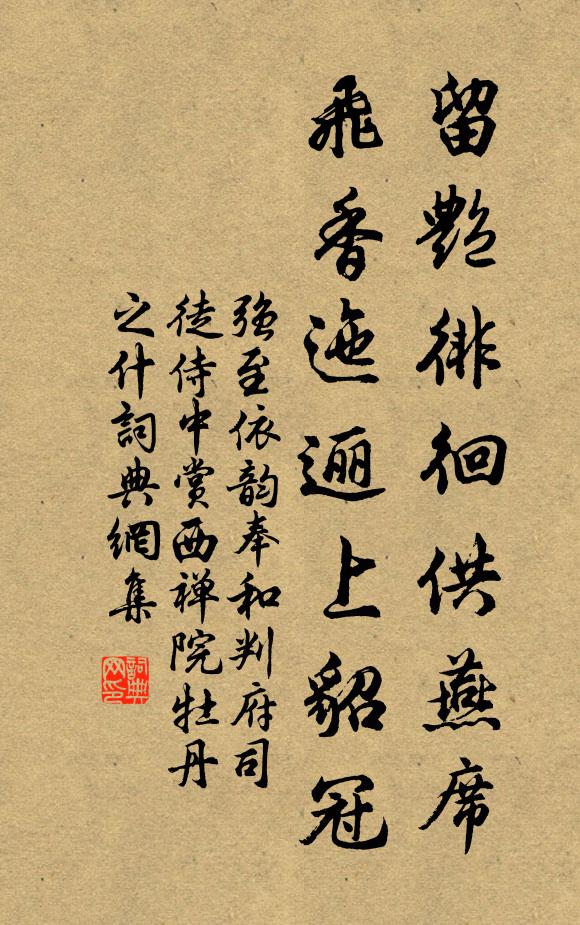 留艷徘徊供燕席
飛香迤逦上貂冠
強至依韵奉和判府司
徒侍中賞西禅院牡丹
之什詞典網集
詞典
网印